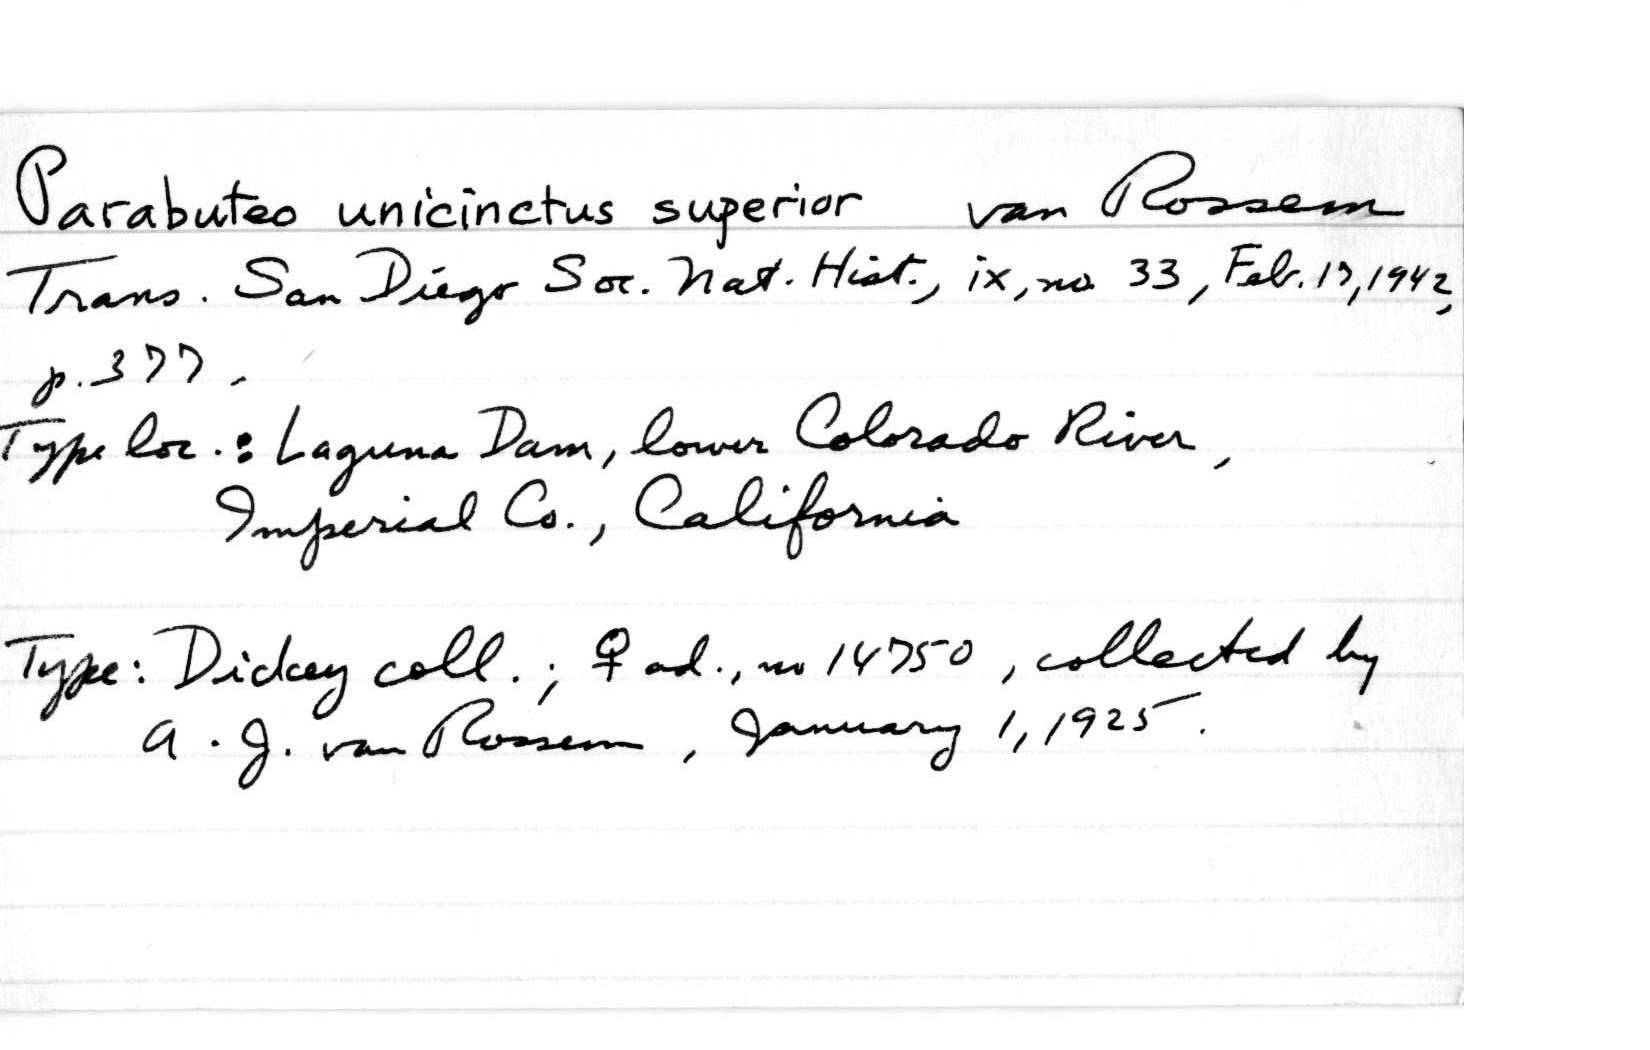 Parabuteo unicinctus superior van Rossem
Trans. San Diego Soc. Nat. Hist., ix, no. 33, Feb. 17, 1942,
p. 377.
Type loc.: Laguna Dam, lower Colorado River,
Imperial Co., California
Type: Dickey coll.; ♀ ad., no 14750, collected by
A. J. van Rossem, January 1, 1925.